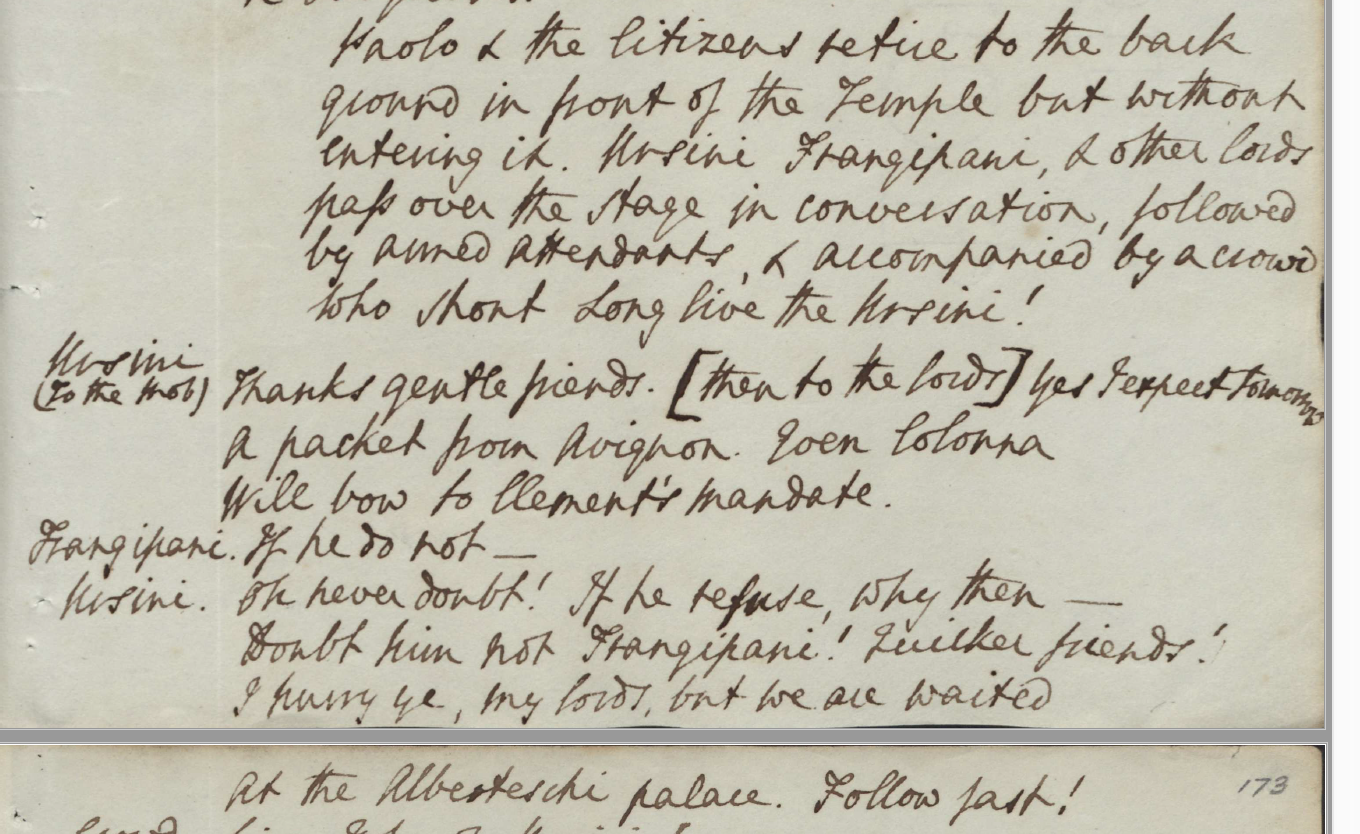 Paolo & the Citizens retire to the back
ground in front of the Temple but without
entering it. Ursini Frangipani, & other lords
pass over the stage in conversation, followed
by armed attendants, & accompanied by a crowd
who shout Long live the Ursini!
Ursini
(To the mob) Thanks gentle friends. [then to the lords] Yes I expect tomorrow
A packet from Avignon. Even Colonna
Will bow to Clement's mandate.
Frangipani. If he do not —
Ursini. Oh never doubt! If he refuse, why then —
Doubt him not Frangipani! Quicker friends!
I hurry ye, my lords, but we are waited
173
At the Alberteschi palace. Follow fast!